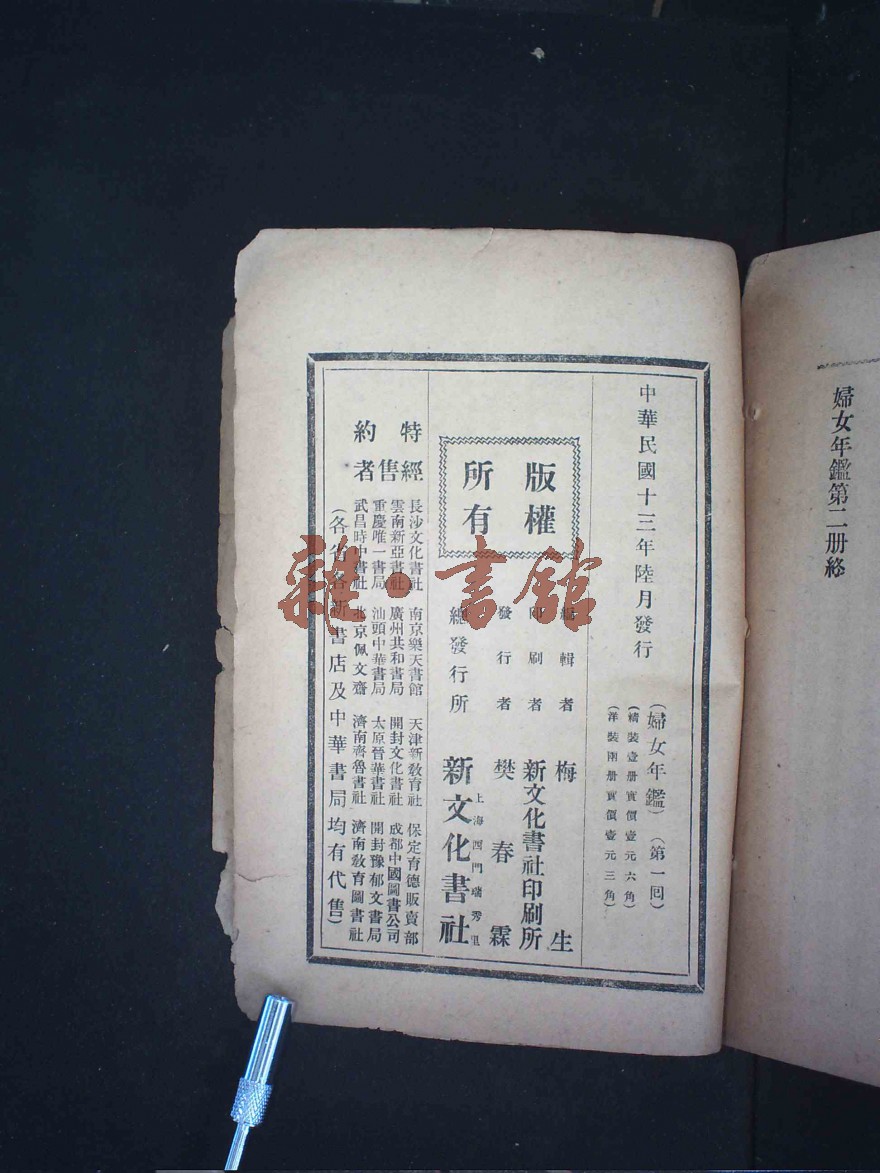 婦女年鑑第二册終
中華民國十三年陸月發行
(婦女年鑑) (第一回)
(精裝壹册實價壹元六角)
(洋裝兩册實價壹元三角)
版權
所有
編輯者 梅生
印刷者 新文化書社印刷所
發行者 樊春霖
總發行所 上海西門瑞秀里 新文化書社
特約
經售者
長沙文化書社 南京樂天書館 天津新教育社 保定育德販賣部
雲南新亞書社 廣州共和書局 開封文化書社 成都中國圖書公司
重慶唯一書局 汕頭中華書局 太原晉華書社 開封豫郁文書局
武昌時中書社 北京佩文齋 濟南齊魯書社 濟南教育圖書社
(各省各新書店及中華書局均有代售)
雜·書館